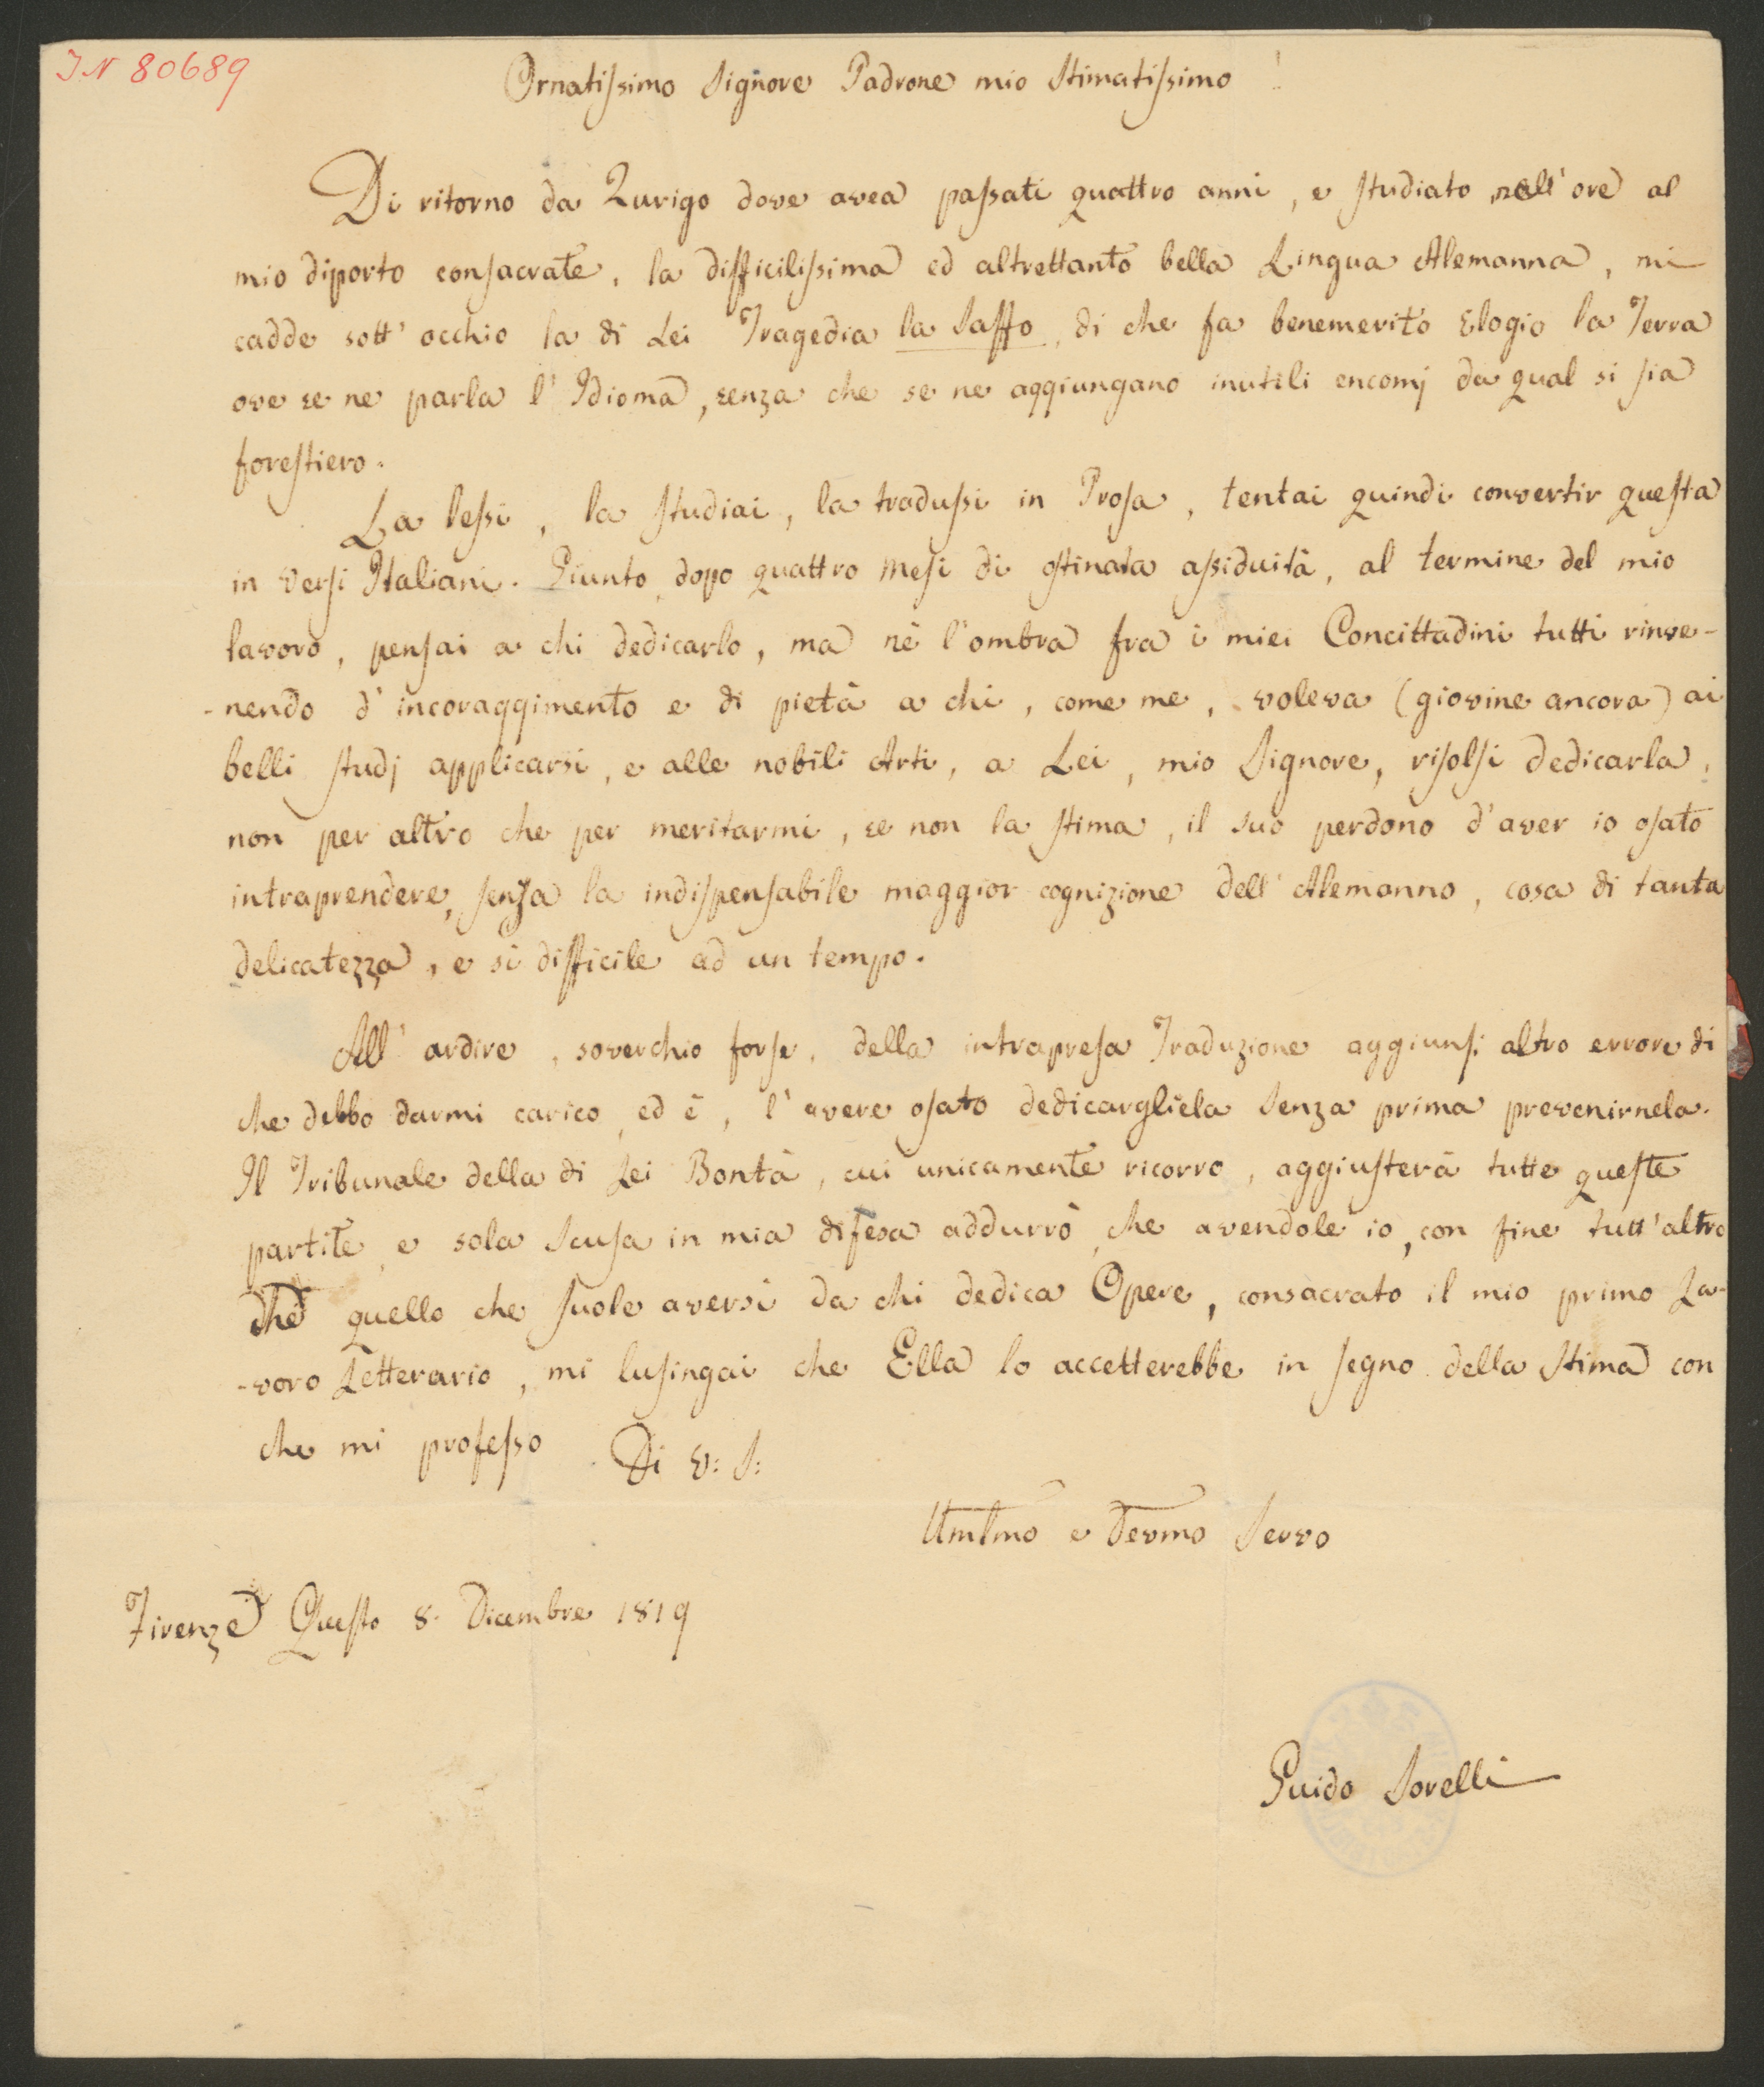 IN 80689
Ornatissimo Signore Padrone mio Stimatissimo !
Di ritorno da Zurigo dove avea passati quattro anni, e studiato nell'ore al
mio diporto consacrate, la difficilissima ed altrettanto bella Lingua Alemanna, mi
cadde sott'occhio la di Lei Tragedia la Saffo, di che fa benemerito Elogio la Terra
ove se ne parla l'Idioma, senza che se ne aggiungano inutili encomj da qual si sia
forestiero.
La lessi, la studiai, la tradussi in Prosa, tentai quindi convertir questa
in versi Italiani. Giunto, dopo quattro mesi di ostinata assiduità, al termine del mio
lavoro, pensai a chi dedicarlo, ma nè l'ombra fra i miei Concittadini tutti rinve-
-nendo d'incoraggimento e di pietà a chi, come me, voleva (giovine ancora) ai
belli studj applicarsi, e alle nobili Arti, a Lei, mio Signore, risolsi dedicarla,
non per altro che per meritarmi, se non la stima, il suo perdono d'aver io osato
intraprendere, senza la indispensabile maggior cognizione dell'Alemanno, cosa di tanta
delicatezza, e sì difficile ad un tempo.
All'ardire, soverchio forse, della intrapresa Traduzione aggiunsi altro errore di
che debbo darmi carico, ed è, l'avere osato dedicargliela senza prima prevenirnela.
Il Tribunale della di Lei Bontà, cui unicamente ricorro, aggiusterà tutte queste
partite, e sola scusa in mia difesa addurrò, che avendole io, con fine tutt'altro
che quello che suole aversi da chi dedica Opere, consacrato il mio primo La-
-voro Letterario, mi lusingai che Ella lo accetterebbe in segno della Stima con
che mi professo Di V: S:
Umlmo e Devmo Servo
Firenze Questo 8. Dicembre 1819
Guido Sorelli